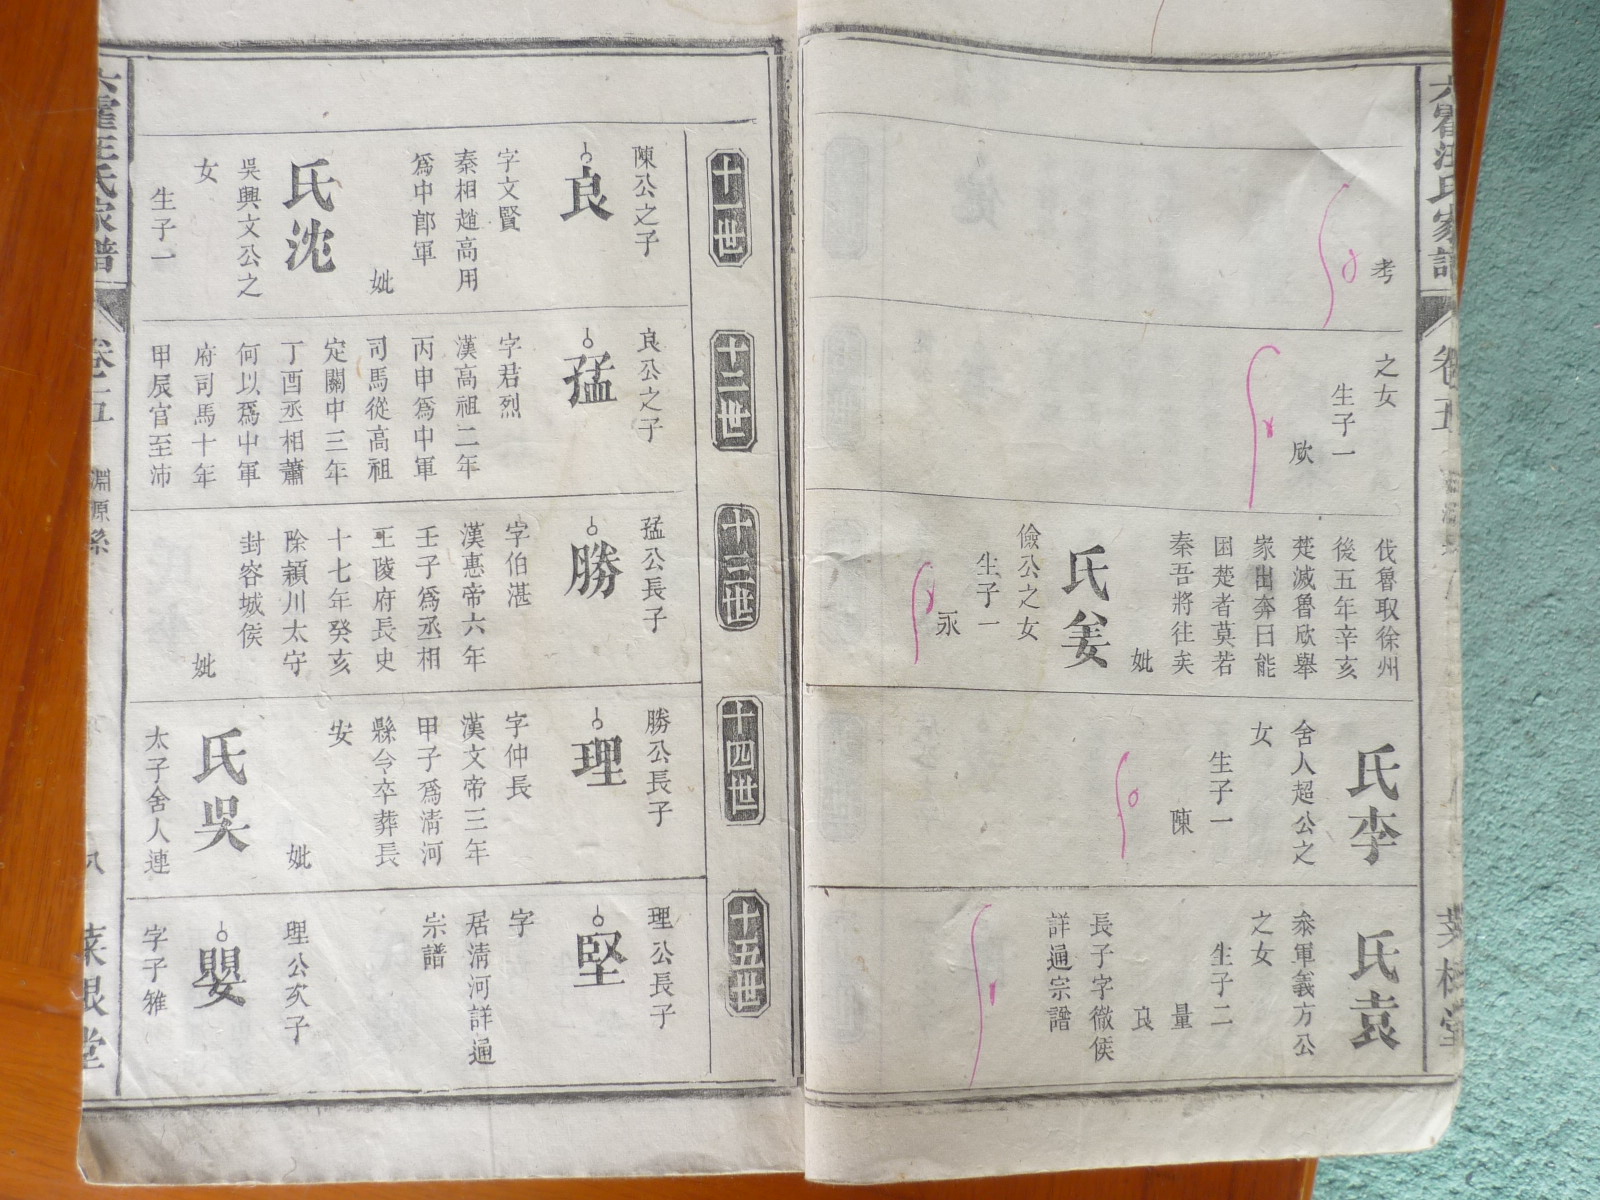 考
之女
生子一
欣
伐魯取徐州
後五年辛亥
楚滅魯欣舉
家出奔曰能
困楚者莫若
秦吾將往矣
妣
氏姜
儉公之女
生子一
永
氏李
舍人超公之
女
生子一
陳
氏袁
叅軍義方公
之女
生子二
量
良
長子字徹侯
詳通宗譜
卷五
十一世
陳公之子
良
字文賢
秦相趙高用
爲中郎軍
妣
氏沈
吳興文公之
女
生子一
十二世
良公之子
猛
字君烈
漢高祖二年
丙申爲中軍
司馬從高祖
定關中三年
丁酉丞相蕭
何以爲中軍
府司馬十年
甲辰官至沛
十三世
猛公長子
勝
字伯湛
漢惠帝六年
壬子爲丞相
王陵府長史
十七年癸亥
除潁川太守
封容城侯
妣
十四世
勝公長子
理
字仲長
漢文帝三年
甲子爲清河
縣令卒葬長
安
妣
氏吳
太子舍人連
十五世
理公長子
堅
字
居清河詳通
宗譜
理公次子
嬰
字子雅
淵源系
八